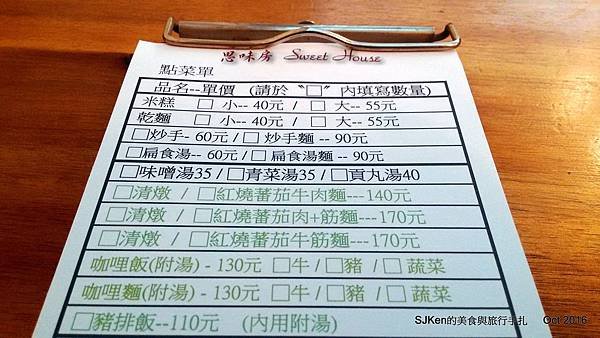 思味房 Sweet House
點菜單
品名--單價 (請於〝□〞內填寫數量)
米糕 □ 小-- 40元 / □ 大-- 55元
乾麵 □ 小-- 40元 / □ 大-- 55元
□炒手- 60元 / □ 炒手麵 -- 90元
□扁食湯-- 60元/ □扁食湯麵 -- 90元
□味噌湯35 / □青菜湯35 / □貢丸湯40
□清燉 / □紅燒蕃茄牛肉麵---140元
□清燉 / □紅燒蕃茄肉+筋麵---170元
□清燉 / □紅燒蕃茄牛筋麵---170元
咖哩飯(附湯) - 130元 □牛 / □豬 / □ 蔬菜
咖哩麵(附湯) - 130元 □牛 / □豬 / □ 蔬菜
□豬排飯--110元 (內用附湯)
SJKen的美食與旅行手扎 Oct 2016